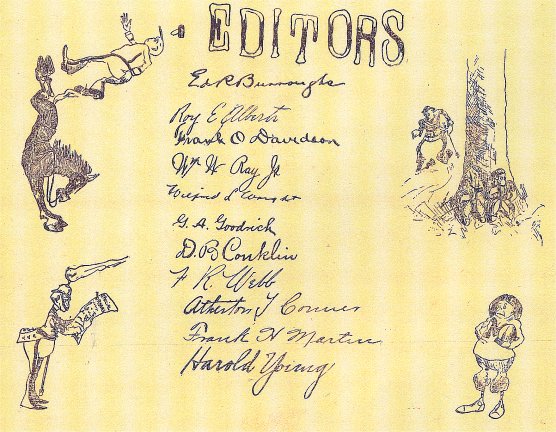 EDITORS
Ed R Burroughs
Roy E Alberts
Frank O Davidson
Wm H Ray Jr
Wilfred L
G. A. Goodrich
D. B Conklin
F R. Webb
Atherton Y Conner
Frank N Martin
Harold Young